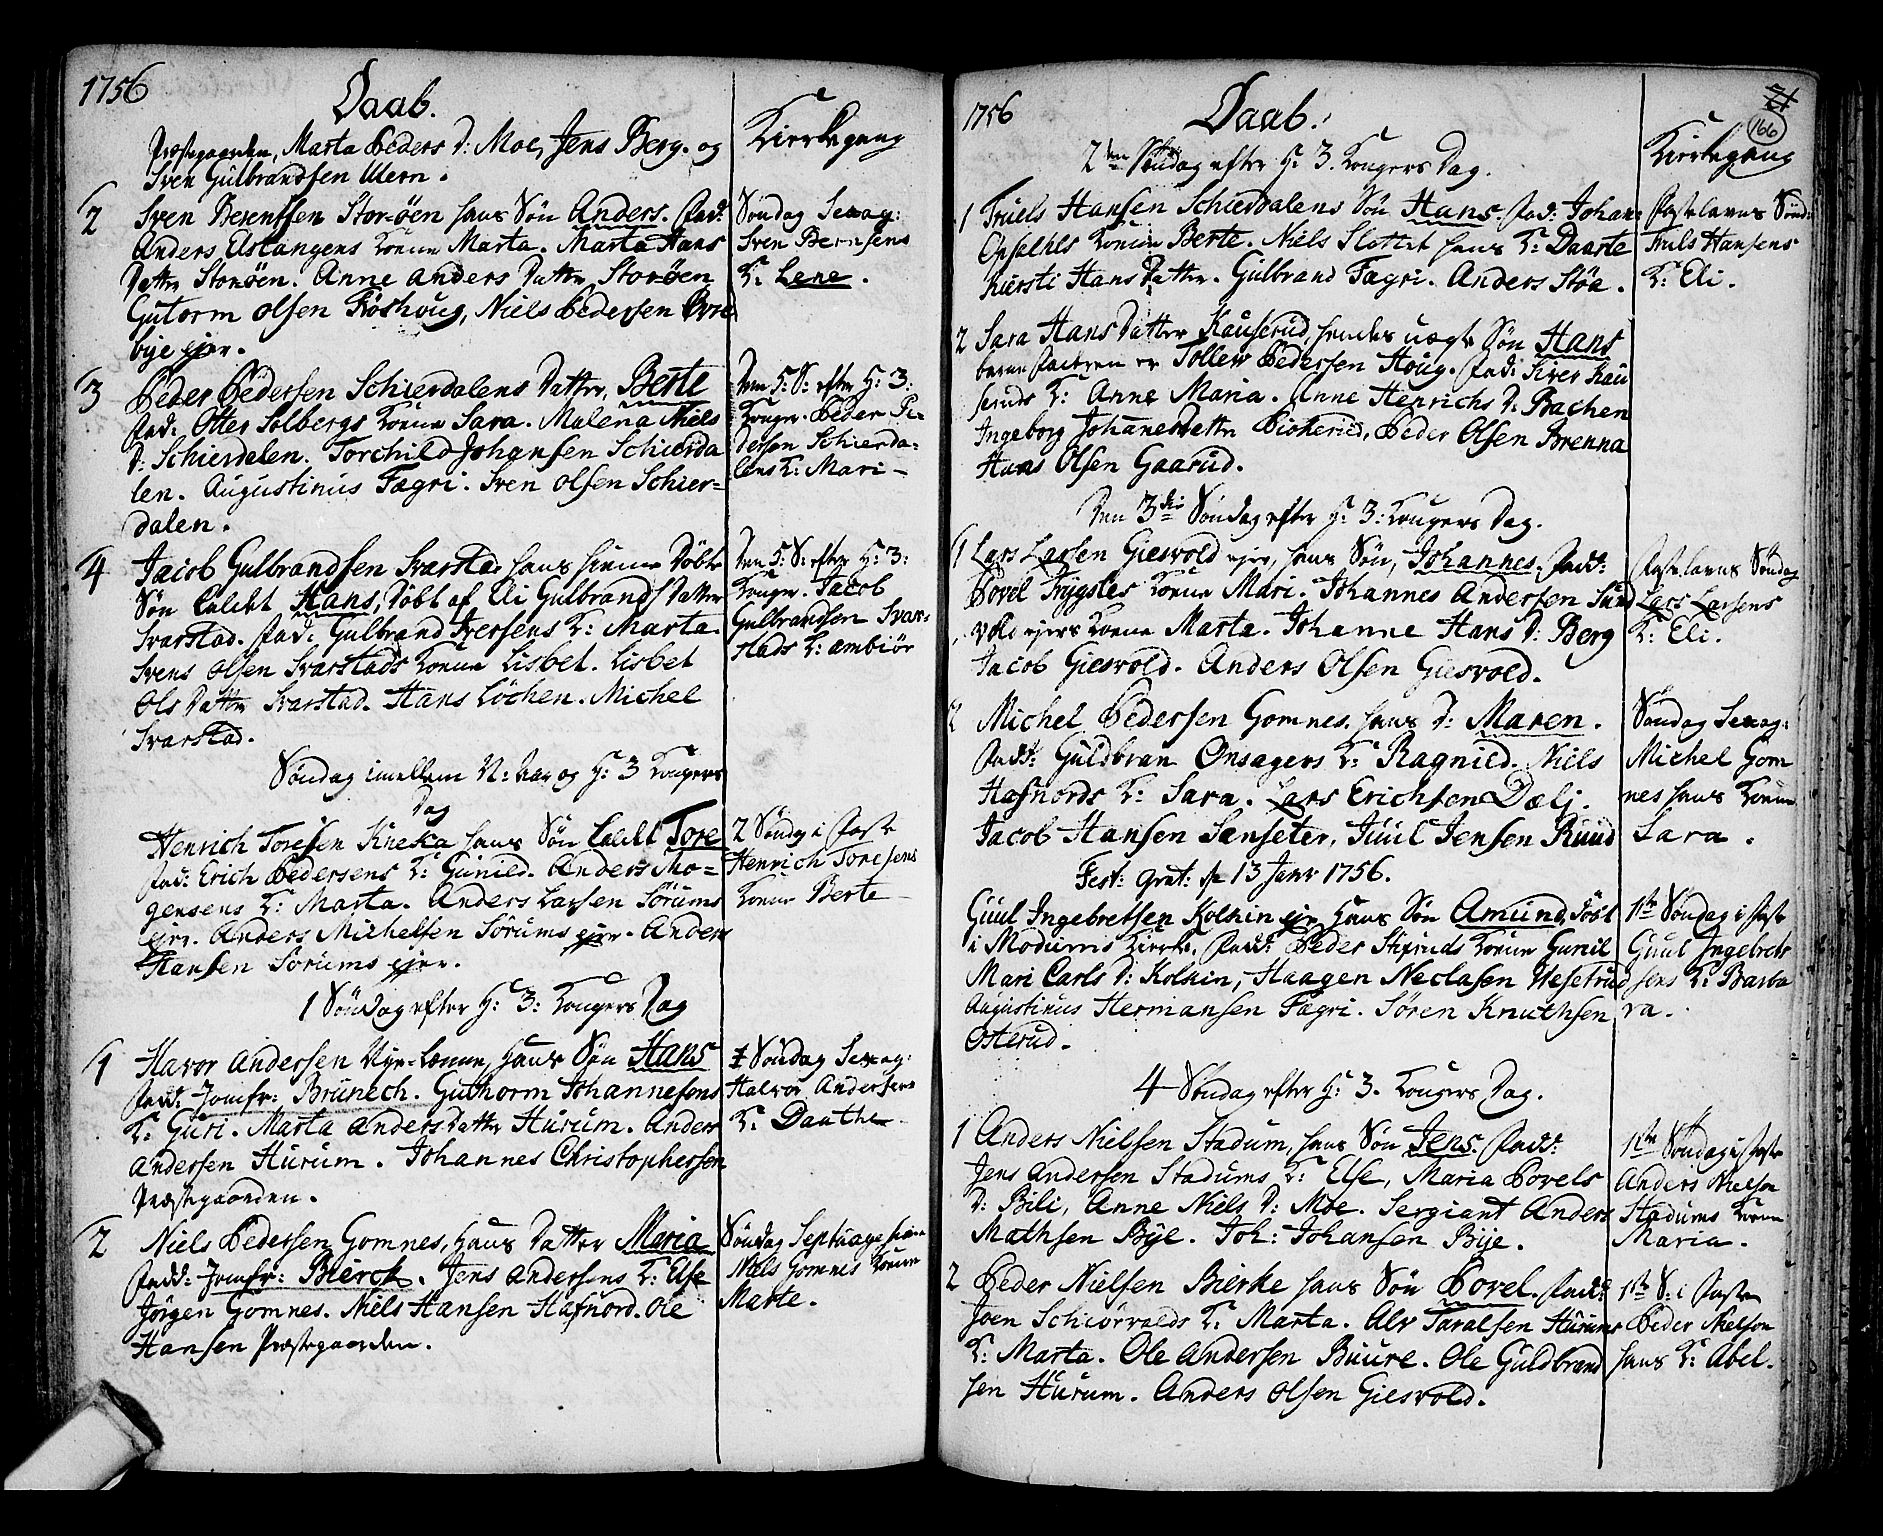 1756
Daab.
Kirkegang
Præstegaarden, Marta Peders D: Moe, Jens Berg. og
Sven Gulbrandsen Wern.
2 Sven Berentsen Stor-öen hans Sön Anders. Fad:
Anders Elstangens Konne Marta. Marta Hans
Datter Storöen. Anne Anders Datter Storöen
Gutorm Olsen Röshoug, Niels Pedersen
bye ejer.
Söndag Sexag:
Sven Bernsens
K: Lene.
3 Peder Pedersen Schierdalens Datter, Berte
Fad: Otter Solbergs Konne Sara. Malena Niels
D: Schierdelen. Torchild Johansen Schierda
len. Augustinus Fægri. Sven Olsen Schier=
dalen.
Den 5: S: efter H: 3:
Konger. Peder Pe-
dersen Schierda-
lens K: Mari -
4 Jacob Gulbrandsen Svarstad hans hiemme Döbte
Sön kaldet Hans, Döbt af Eli Gulbrands Datter
Svarstad. Fad: Gulbrand Iversens K: Marta.
Svens Olsen Svarstads Konne Lisbet. Lisbet
Ols Datter Svarstad. Hans Löchen. Michel
Svarstad.
Den 5: S: efter H: 3:
Konger. Jacob
Gulbrandsen Svar-
stads K: Æmbiör
Söndag imellem N: Aar og H: 3 Kongers
Dag
Henrich Toresen Kneka hans Sön kaldet Tore
Fad: Erich Pedersens K: Gunild. Anders Mo=
gensens K: Marta. Anders Larsen Sörums
ejer. Anders Michelsen Sörums ejer. Anders
Hansen Sörums ejer.
2 Söndag i Faste
Henrich Toresens
Konne Berte
1 Söndag efter H: 3: Kongers Dag
1 Havor Andersen Hans Sön Hans
Fadd: Jomfr: Brunech. Guthorm Johannesens
K: Guri. Marta Anders Datter Hurum. Anders
Andersen Hurum. Johannes Christophersen
Præstegaarden.
Söndag Sexag:
Halvor Andersens
K: Daathe
2 Niels Pedersen Gomnes, Hans Datter Maria
Fadd: Jomfr: Bierck. Jens Andersens K: Else
Jörgen Gomnes. Niels Hansen Hafnord. Ole
Hansen Præstegaarden.
Söndag Septuagesima
Niels Gomnes Konne
Marte.
1756
Daab.
Kirkegang
71
166
2den Söndag efter H: 3. Kongers Dag.
1 Truels Hansen Schierdalens Sön Hans. Fad: Johan
Opsahls Konne Berte. Niels Slottet hans K: Daarte
Kiersti Hans Datter. Gulbrand Fægri. Anders Stöa.
Fastelavns Sönd:
Truls Hansens
K: Eli.
2 Sara Hans Datter Kauserud, hendes uægte Sön Hans
barne Faderen er Tollew Pedersen Houg. Fad: Siver Kau
seruds K: Anne Maria. Anne Henrichs D: Bachen
Ingeborg Johannes Datter Piokerud, Peder Olsen Brenna
Hans Olsen Gaarud.
Den 3die Söndag efter H: 3: Kongers Dag.
1 Lars Larsen Giesvold ejer, hans Sön, Johannes. Fadd:
Povel Frygsles Konne Mari. Johannes Andersen Sund
vold ejers Konne Marta. Johanne Hans D: Berg
Jacob Giesvold. Anders Olsen Giesvold.
Fastelavns Söndag
Lars Larsens
K: Eli.
2 Michel Pedersen Gomnes. hans D: Maren.
Fadd: Guldbran Onsagers K: Ragnild. Niels
Hafnords K: Sara. Lars Erichsen Dælj.
Jacob Hansen Sænseter, Juul Jensen Ruud
Söndag Sexag:
Michel Gom
nes hans Konne
Sara.
Fest: Grat: d 13 Janv 1756.
Guul Ingebretsen Kolkin ejr Hans Sön Amund, Döbt
i Modums Kirke. Fadd: Peder Stixruds Konne Gunil
Mari Carls D: Kolkin, Haagen Neclasen Hesetrud
Augustinus Hermansen Fægri. Sören Knuthsen
Osterud.
1ste Söndag i Faste
Guul Ingebret
sens K: Barba
ra.
4 Söndag efter H: 3. Kongers Dag.
1 Anders Nielsen Stadum, hans Sön Jens. Fadd:
Jens Andersen Stadums K: Else, Maria Povels
D: Bili, Anne Niels D: Moe. Sergiant Anders
Mathsen Bye. Joh: Johansen Bije.
1ste Söndag i Faste
Anders Nielsen
Stadums Konne
Maria.
2 Peder Nielsen Bierke hans Sön Povel. Fadd:
Joen Schiörvolds K: Marta. Alv Taralsen Hurums
K: Marta. Ole Andersen Buure. Ole Guldbrand
sen Hurum. Anders Olsen Giesvold.
1ste S: i Faste
Peder Nielsen
hans K: Abel.